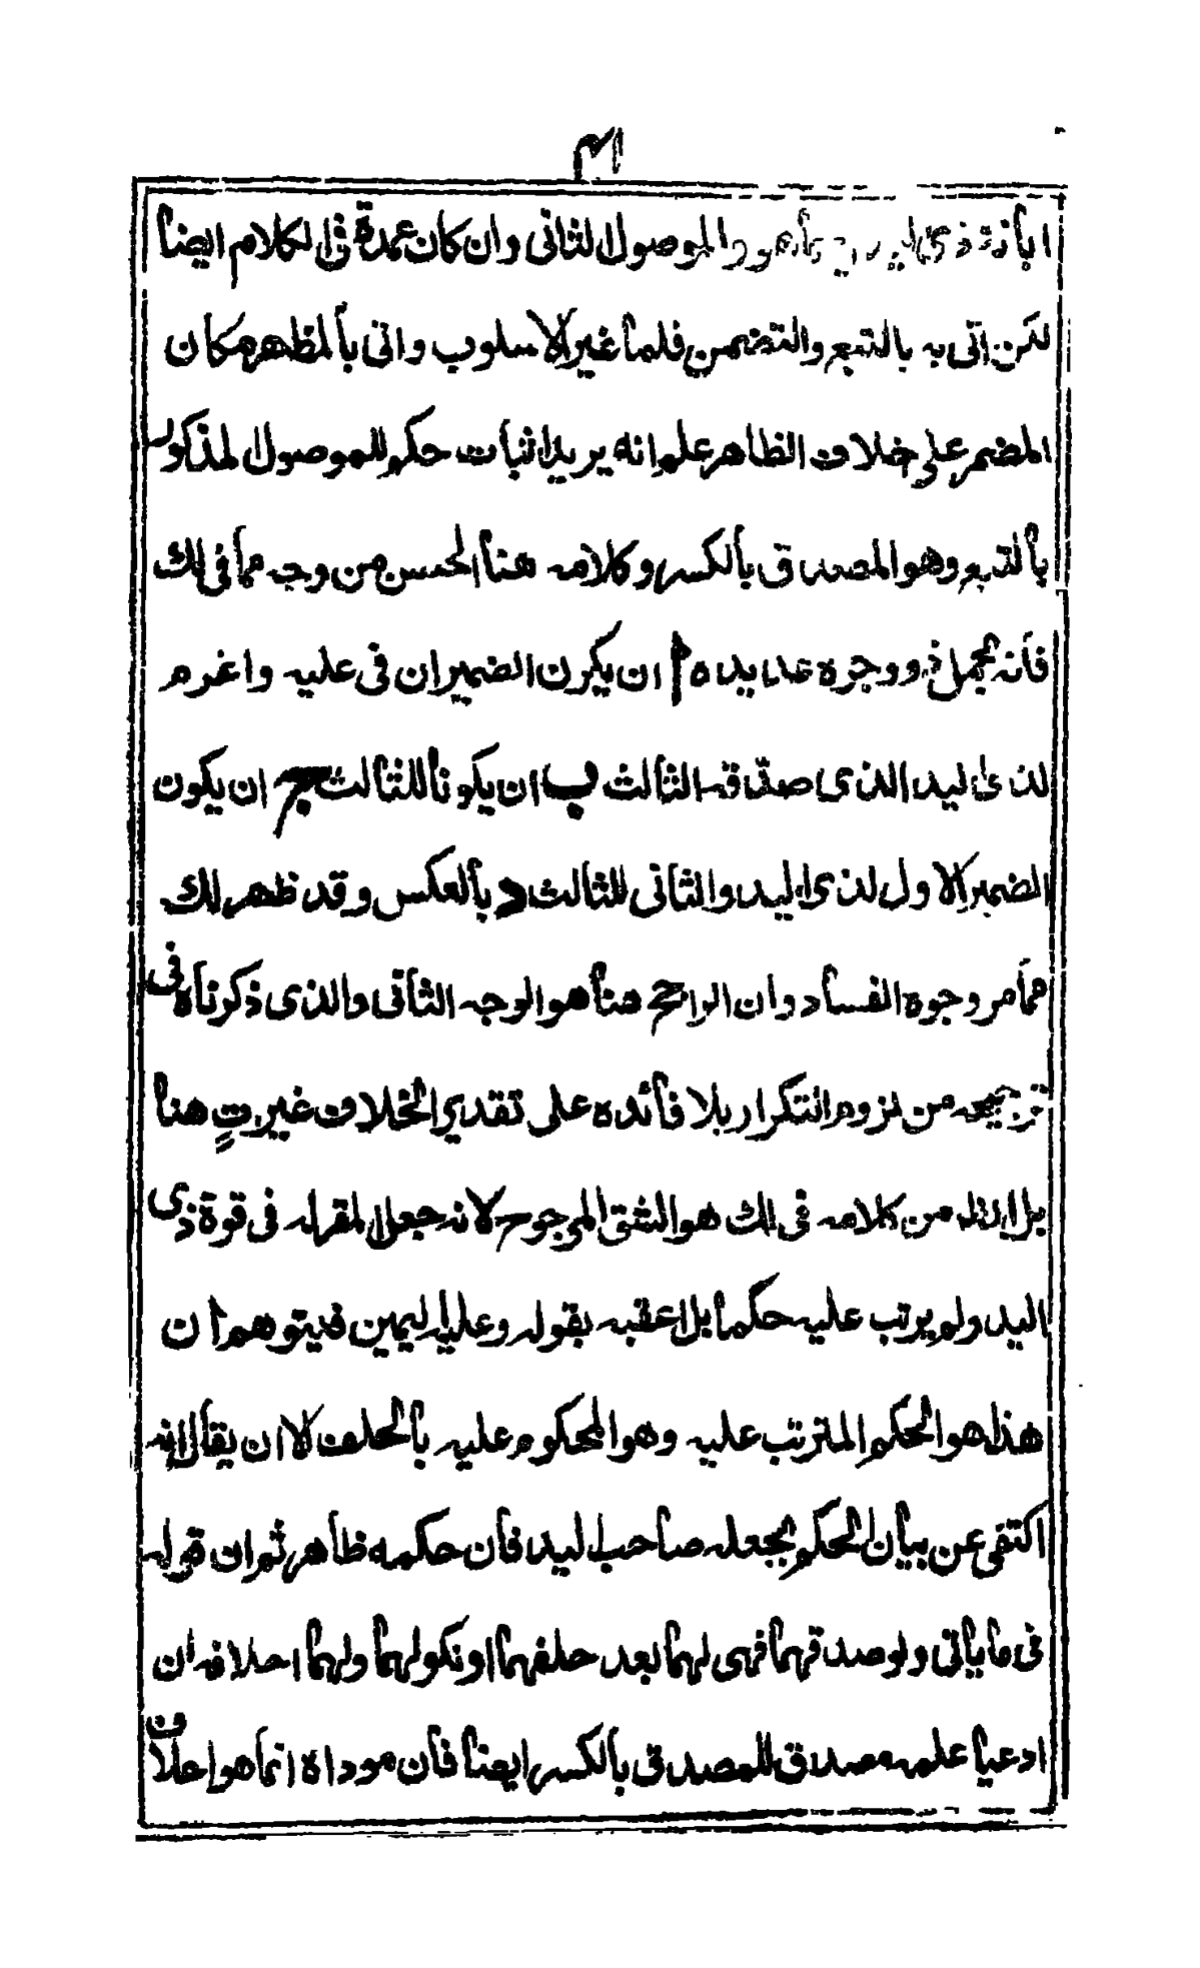 ٣١
الموصول الثانى وان كان عمدة فى الكلام ايضا
لكن اتى به بالتبع والتضمن فلما غير الاسلوب واتى بالمظهر مكان
المضمر على خلاف الظاهر علم انه يريد اثبات حكم للموصول المذكور
بالتبع وهو المصدق بالكسر وكلامه هنا احسن من وجه مما فى لك
فانه يحتمل ذو وجوه عديده ا ان يكون الضميران فى عليه واغرم
لذى اليد الذى صدقه الثالث ب ان يكونا للثالث ج ان يكون
الضمير الاول لذى اليد والثانى للثالث د بالعكس وقد ظهر لك
مما مر وجوه الفساد وان الراجح هنا هو الوجه الثانى والذى ذكرناه فى
ترجيحه من لزوم التكرار بلا فائده على تقدير الخلاف غير ت هنا
بل من كلامه فى لك هو الشق المرجوح لانه جعل المقر له فى قوة ذى
اليد ولم يرتب عليه حكما بل اعقبه بقوله وعليه اليمين فيتوهم ان
هذا هو الحكم المترتب عليه وهو المحكوم عليه بالحلف لا ان يقال انه
اكتفى عن بيان الحكم بجعله صاحب اليد فان حكمه ظاهر ثم ان قوله
فى ما ياتى ولو صدقهما فهى لهما بعد حلفهما او نكولهما ولهما احلافه ان
ادعيا علمه مصدق للمصدق بالكسر ايضا فان موداه انما هو احلاف